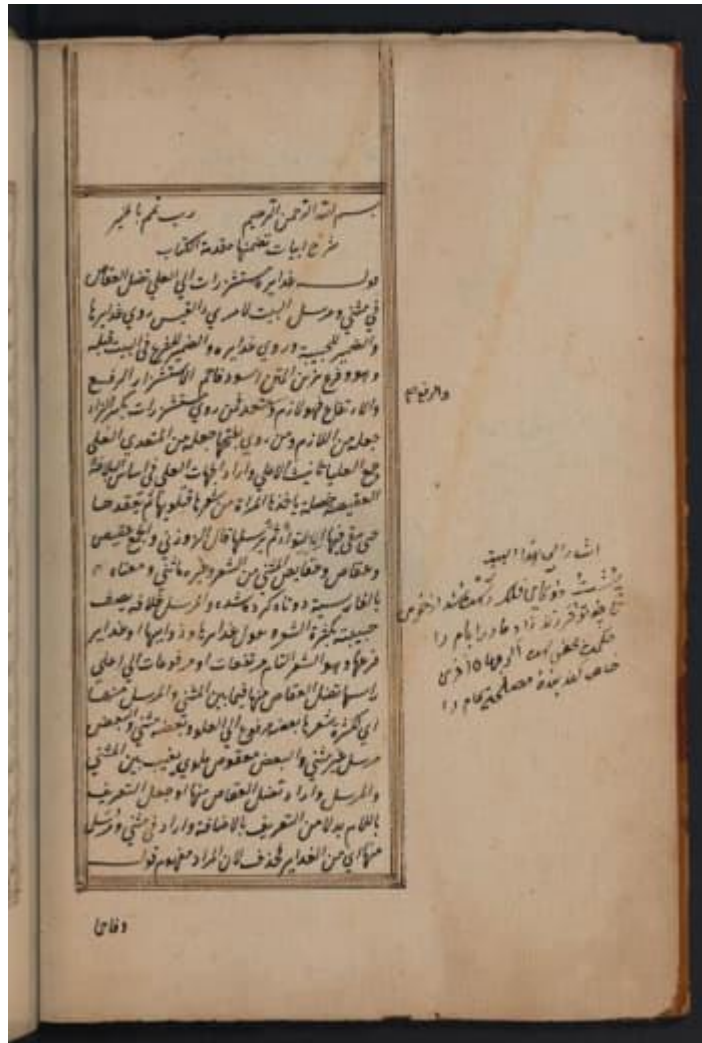 بسم الله الرحمن الرحيم رب تمم بالخير
شرح ابيات تضمنها مقدمة الكتاب
قوله غدايره مستشزرات الي العلي تضل العقاص
في مثني ومرسل البيت لامرئ القيس روي غدايرها
والضمير للحبيبة وروي غدايره والضمير للفرع في البيت قبله
وهو وفرع يزين المتن اسود فاحم الاستشزار الرفع
والارتفاع فهو لازم ومتعد فمن روي مستشزرات بكسر الزاء
جعله من اللازم ومن روي بفتحها جعله من المتعدي العلي
جمع العليا تانيث الاعلي واراد الجهات العلي في اساس البلاغة
العقيصة خصلة ياخذها المراة من شعرها فتلويها ثم تعقدها
حتي يبقي فيها التواء ثم ترسلها قال الزوزني والجمع عقيص
وعقاص وعقايص المثني من الشعر وغيره ما ثني ومعناه
بالفارسية دوتاه كرده شده والمرسل خلافه يصف
حبيبته بكثرة الشعر يقول غدايرها وذوايبها او غداير
فرعها وهو الشعر التام مرتفعات او مرفوعات الي اعلي
راسها تضل العقاص منها فيما بين المثني والمرسل منها
اي لكثرة شعرها بعضه مرفوع الي العلو وبعضه مثني والبعض
مرسل غير مثني والبعض معقوص ملوي يغيب بين المثني
والمرسل واراد تضل العقاص منها او جعل التعريف
باللام بدلا من التعريف بالاضافة واراد في مثني ومرسل
منها اي من الغداير فحذف لان المراد مفهوم قوله
اشار الي هذا البيت
پشت دوتاي فلك راست شد از خرمي
تا چو تو فرزند زاد مادر ايام را
حكمت محض است اگر
خاص كند بنده مصلحت عام را